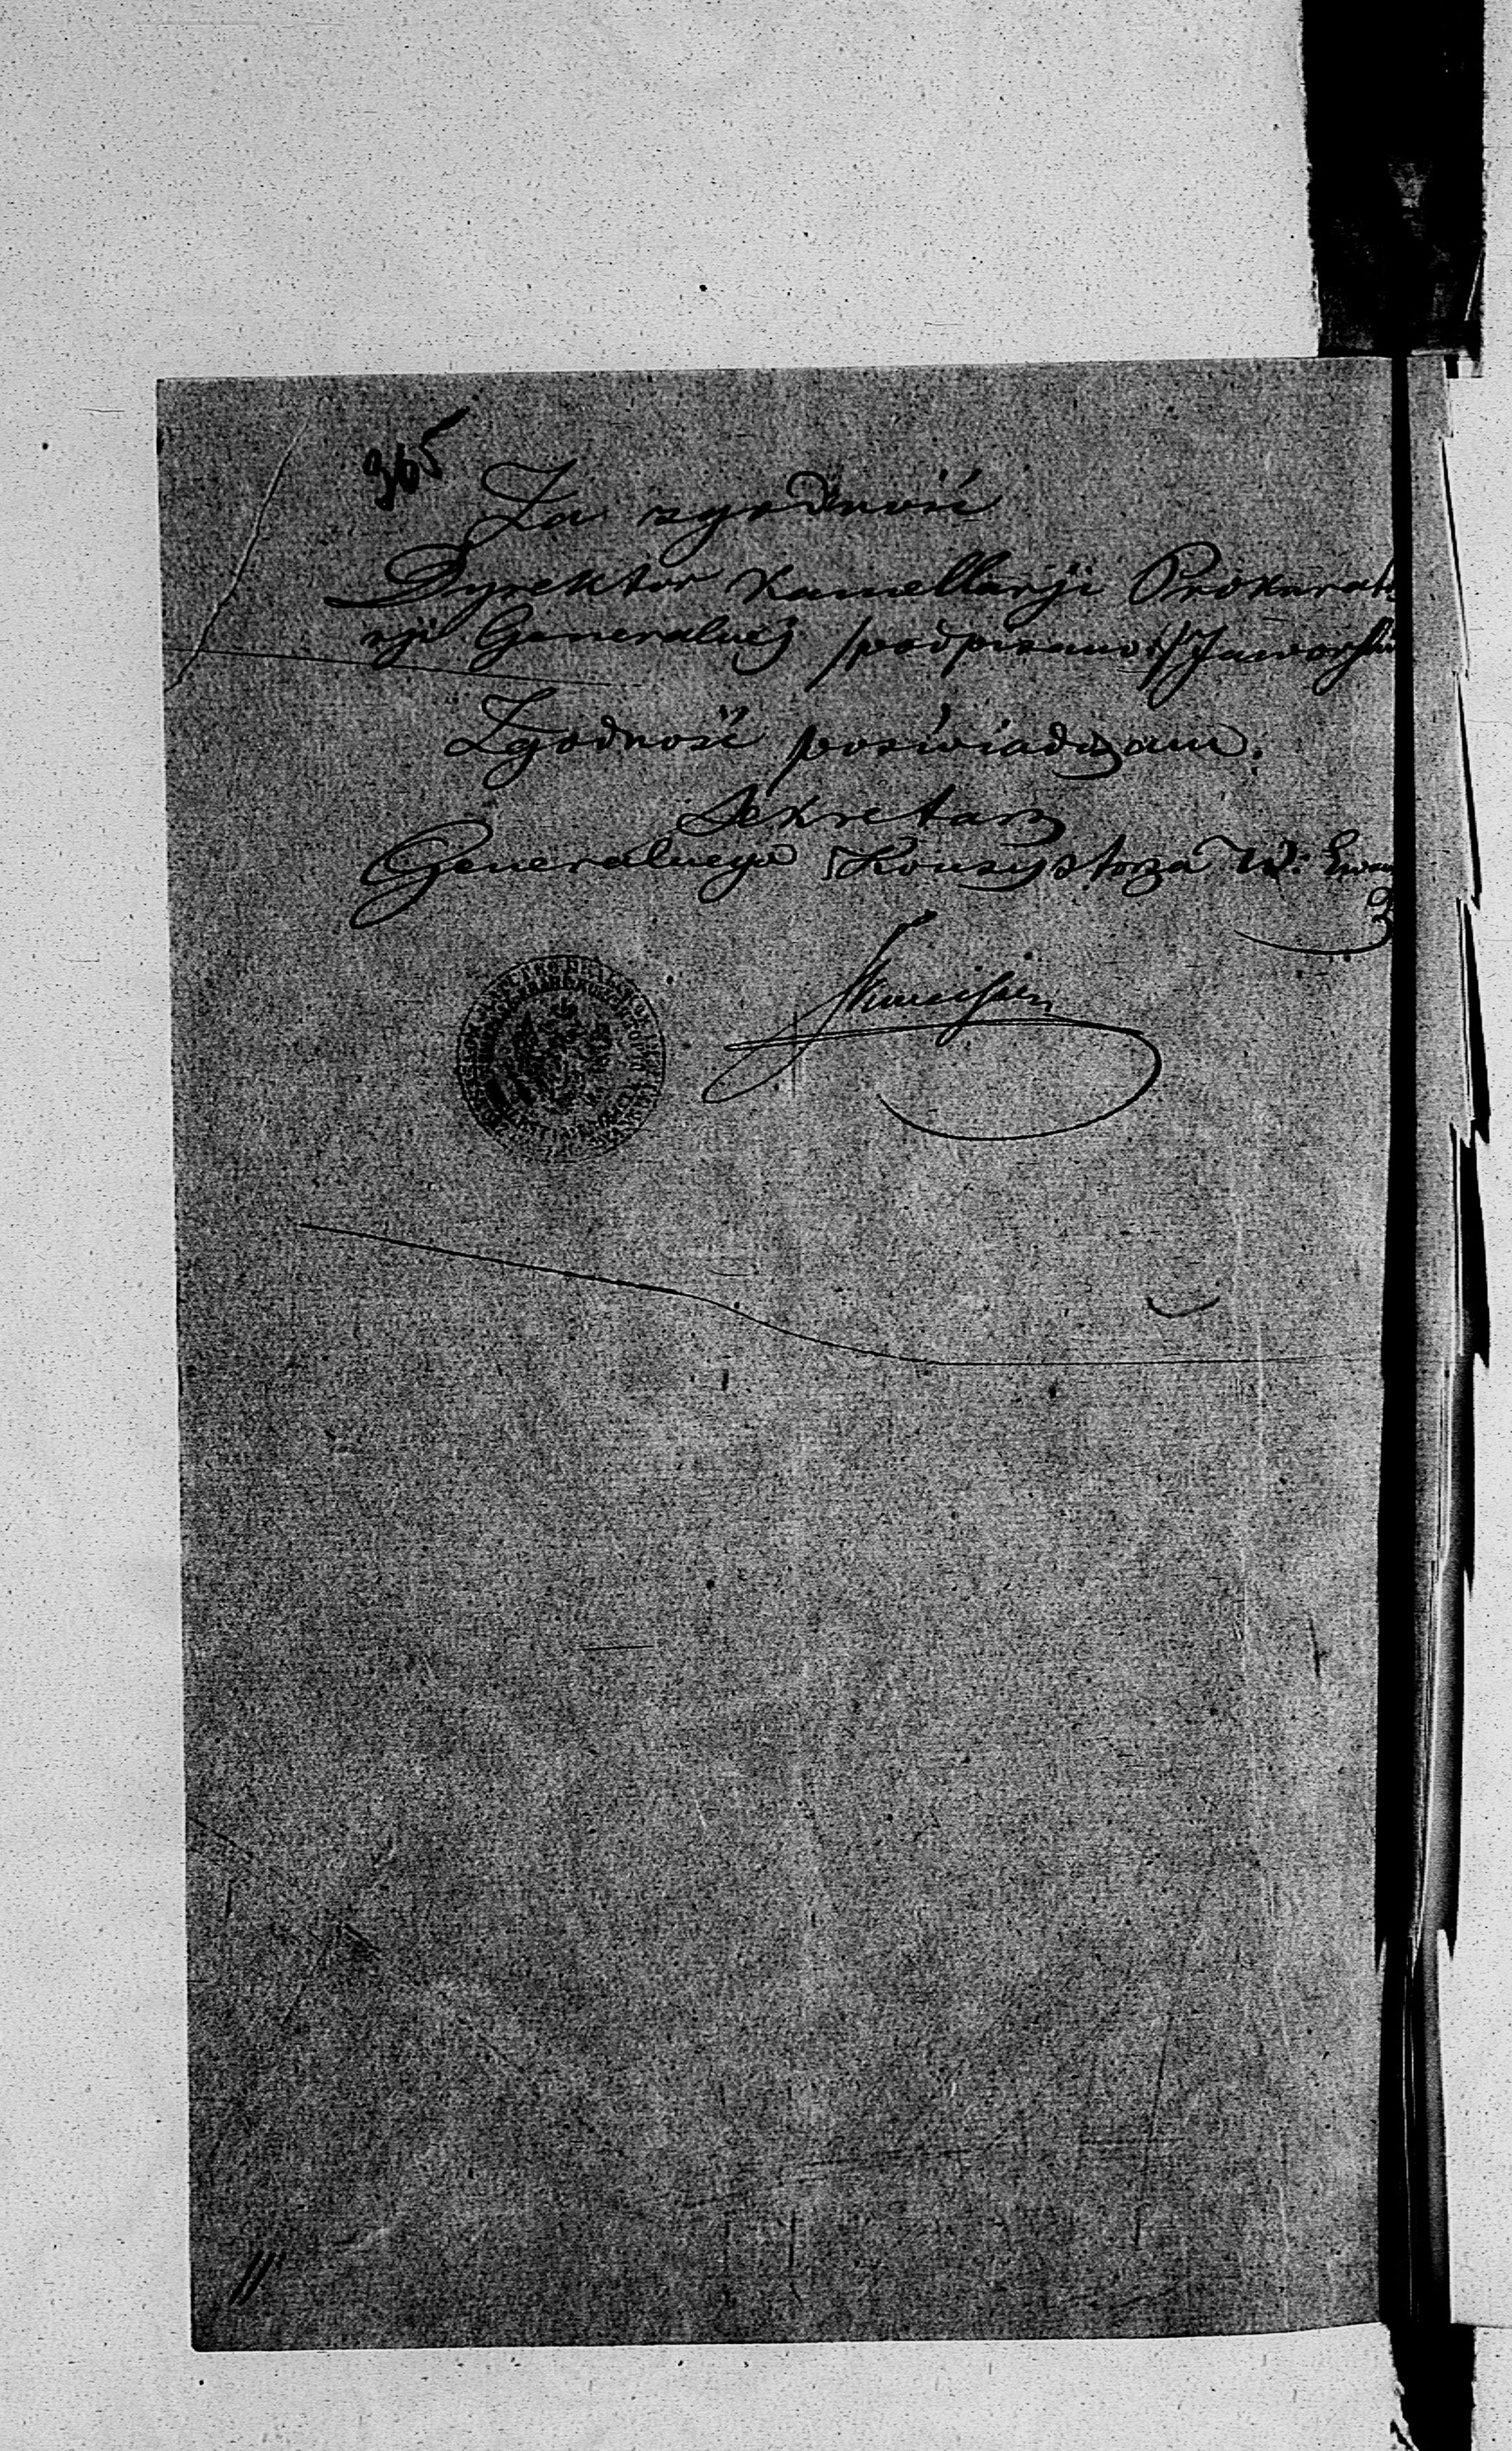 365
Za zgodność
Dyrektor Kancellaryi Prokurat
ryi Generalnéj /podpisano:/ Jaworski
Zgodność poświadczam.
Sekretarz
Generalnego Konsystorza W: Ewan
11